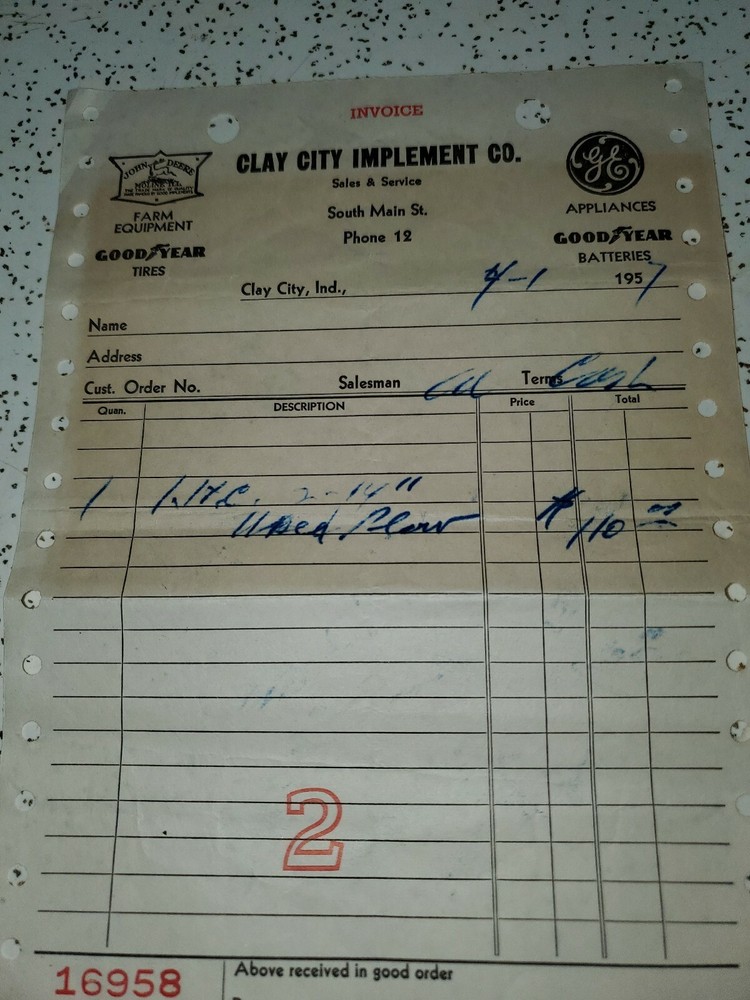 INVOICE
JOHN DEERE
MOLINE, ILL.
CLAY CITY IMPLEMENT CO.
GE
Sales & Service
FARM
EQUIPMENT
South Main St.
APPLIANCES
GOODYEAR
TIRES
Phone 12
GOODYEAR
BATTERIES
Clay City, Ind., 4-1 1957
Name
Address
Cust. Order No. Salesman Terms Cash
Quan. DESCRIPTION Price Total
1 I.H.C. 2-14"
Used Plow $110 00
2
16958 Above received in good order